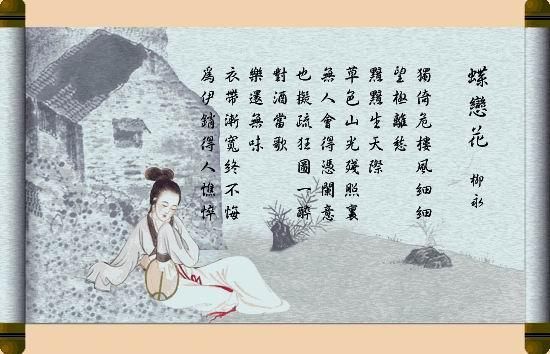 蝶戀花 柳永
獨倚危樓風細細
望極離愁
黯黯生天際
草色山光殘照裏
無人會得憑闌意
也擬疏狂圖一醉
對酒當歌
樂還無味
衣帶漸寬終不悔
爲伊銷得人憔悴